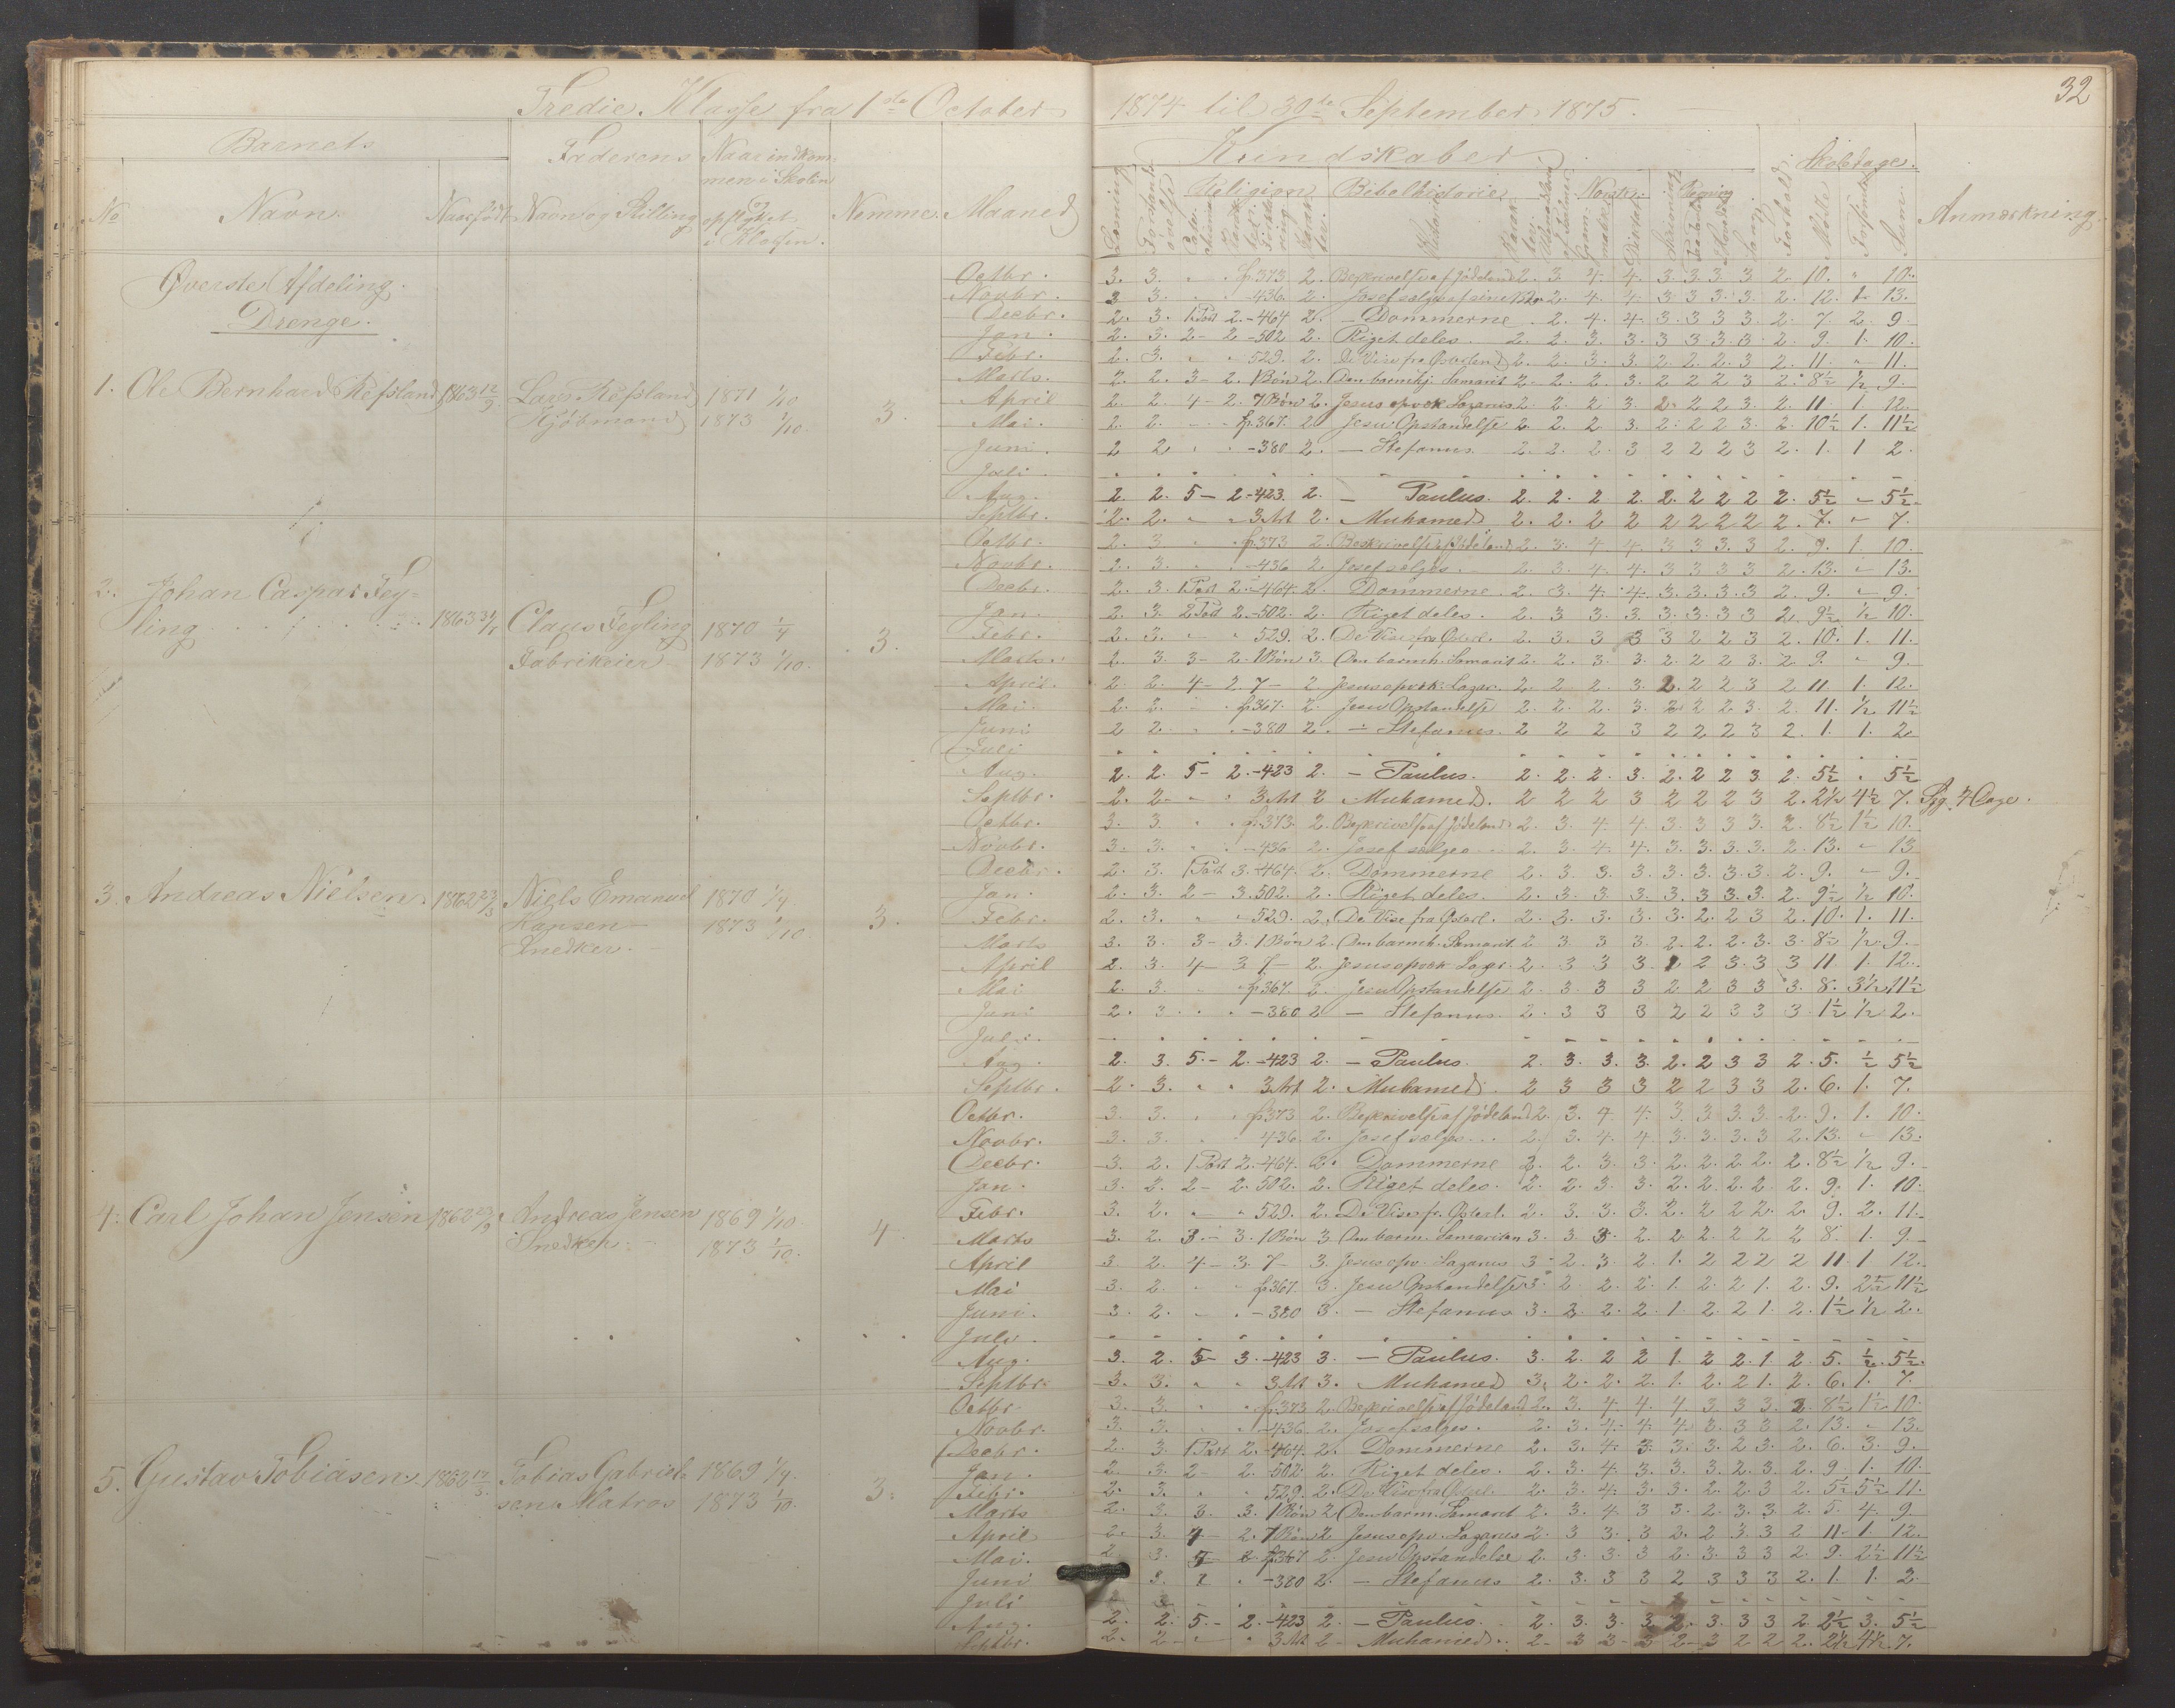 32
Tredie Klasse fra 1ste October 1874 til 30te September 1875.
Barnets
Faderens
Naar indkom-
men i Skolen
og
opflyttet
i Klassen.
Kundskaber
Skoledage.
No
Navn.
Naar født
Navn og Stilling
Nemme.
Maaned
Religion
Bibelhistorie
Norsk.
Møtte
Forsømte
Sum.
Anmærkning.
Øverste Afdeling.
Drenge.
1. Ole Bernhard Refsland 1863 12/9 Lars Refsland 1871 1/10
Kjøbmand 1873 1/10. 3.
Octbr. 3. 3. " " f.373. 2. Beskrivelse af Jødeland 2. 3 4. 4. 3. 3. 3. 3 2. 10. " 10.
Novbr. 3 3. " " -436. 2. Josef sælges af sine 2. 4. 4. 3. 3 3. 3. 2. 12. 1. 13.
Decbr. 2. 3. 1 Part 2. -464 2. - Dommerne 2. 4. 4. 3. 3 3 3. 2. 7. 2. 9.
Jan. 2. 3. 2 - 2 -502 2. Riget deles. 2. 2. 3. 3. 3 3 3. 3. 2. 9. 1. 10.
Febr. 2. 3. " " 529. 2. De Vise fra Østerland 2. 2. 3. 3. 2. 2. 2. 3 2. 11. " 11.
Marts. 2. 2. 3 - 2. 1 Bøn 2. Den barmhj. Samarit 2. 2. 2. 3. 2 2 2 3 2. 8½ ½ 9.
April 2. 2. 4 - 2. 7 Bøn 2. Jesus opvek. Lazarus 2. 2. 2 3. 2. 2 2 3. 2. 11. 1. 12.
Mai. 2. 2. - - f.367. 2. Jesu Opstandelse 2. 2. 2 3. 2. 2 2 3. 2. 10½ 1. 11½
Juni. 2 2 " " -380 2. - Stefanus. 2. 2. 2. 3 2 2 2 3 2. 1. 1 2.
Juli.
Aug. 2. 2. 5 - 2. -423. 2. - Paulus. 2. 2. 2 2. 2. 2 2 2 2. 5½ - 5½
Septbr. 2. 2. " " 3 Art 2. Muhamed. 2. 2. 2 2 2 2 2 2 2. 7. - 7.
2. Johan Caspar Teg-
ling 1863 31/8 Claus Tegling 1870 1/4
Fabrikeier 1873 1/10. 3.
Octbr. 2. 3 " " f.373 2. Beskrivelse af Jødeland 2. 3. 4. 4. 3 3 3. 3 2. 9. 1. 10.
Novbr. 2. 3. " " -436 2. Josef sælges. 2. 3. 4. 4. 3 3 3 3 2. 13. - 13.
Decbr. 2. 3. 1 Part 2. -464. 2. Dommerne. 2. 3. 4. 4. 3. 3. 3. 3 2. 9. - 9.
Jan. 2. 3. 2 Part 2. -502. 2. Riget deles. 2. 3 3. 3. 3. 3 3 3 2. 9½ ½ 10.
Febr. 2. 3. - " 529. 2. De Vise fra Østerl. 2. 3. 3 3 3 2 2 3 2. 10. 1. 11.
Marts. 2. 3. 3 - 2. 1 Bøn 3. Den barmh. Samarit 2. 2. 3. 3. 2. 2 2 3. 2 9. - 9.
April. 2. 2. 4 - 2. 7 - 2 Jesus opvek. Lazar. 2. 2 2. 3. 2. 2 2 3 2 11. 1. 12.
Mai. 2. 2. - - f.367. 2. Jesu Opstandelse 2. 2. 2. 3. 2. 2 2 3. 2. 11. ½ 11½
Juni 2 2 " " -380 2. - Stefanus. 2 2 2 3 2 2 2 3 2. 1. 1. 2
Juli
Aug. 2. 2. 5 - 2. -423 2. - Paulus. 2. 2. 2. 3. 2. 2 2 3. 2. 5½ - 5½
Septbr. 2. 2 - - 3 Art 2 Muhamed. 2 2 2 3 2 2 2 3 2. 2½ 4½ 7. Syg 4 Dage.
3. Andreas Nielsen 1862 23/3 Niels Emanuel 1870 1/4.
Hansen 1873 1/10. 3.
Snedker.
Octbr. 3. 3. " " f.373. 2. Beskrivelse af Jødeland 2. 3. 4. 4. 3. 3 3 3. 2. 8½ 1½ 10.
Novbr. 3. 3. " " -436 2. Josef sælges 2. 3 4. 4. 3. 3. 3. 3. 2. 13. - 13
Decbr. 2. 3. 1 Part 3. -464. 2. Dommerne 2. 3 3. 3. 3. 3. 3. 3. 2. 9. - 9.
Jan. 2. 3. 2 - 3. 502. 2. Riget deles. 2. 3. 3. 3. 3. 3. 3. 3. 2. 9½ ½ 10.
Febr. 2. 3. " " -529. 2. De Vise fra Østerl. 2. 3. 3. 3. 3. 2. 2 3 2. 10. 1. 11.
Marts 3. 3. 3 - 3. 1 Bøn 2. Den barmh. Samarit 2 3. 3 3. 2. 2. 2. 3. 3. 8½ ½ 9.
April 2. 3. 4 - 3 7 - 2. Jesus opvek Lazar. 2. 3 3 3. 2 2 3. 3 3 11. 1. 12.
Mai 2. 3. " f.367. 2. Jesu Opstandelse 2. 3. 3 3 2 2 3 3 3. 8. 3½ 11½
Juni 2. 3 " " -380 2 - Stefanus. 2. 3 3 3 2 2 3 3 3 1½ ½ 2.
Juli.
Aug. 2. 3. 5. - 2. -423 2. - Paulus. 2. 3. 3. 3. 2. 2 3 3 2. 5. ½ 5½
Septbr. 2. 3. " " 3 Art 2. Muhamed. 2 3 3 3 2 2 3 3 2. 6. 1. 7.
4. Carl Johan Jensen 1862 29/9 Andreas Jensen 1869 1/10
Snedker. 1873 1/10. 4.
Octbr. 3. 3. " " f.373 2. Beskrivelse af Jødeland 2. 3. 4 4. 3 3 3. 3. 2. 9. 1. 10.
Novbr. 3. 3. " " 436. 2. Josef sælges. 2. 3. 4. 4. 3. 3. 3. 3 2. 13. - 13.
Decbr. 3. 2. 1 Part 2. -464. 2. Dommerne 2. 2. 3. 3. 2. 2. 2. 2. 2. 8½ ½ 9.
Jan. 3. 2. 2 - 2. 502. 2. Riget deles. 2. 2. 3. 3. 2. 2. 2. 2. 2. 9. 1. 10.
Febr. 3. 2. " " 529. 2. De Vise fr. Østerl. 2. 3. 3. 3. 2. 2 2 2. 2. 9. 2. 11.
Marts 3. 2. 3 - 3. 1 Bøn 3 Den barm. Samaritan 3. 3. 3. 2. 2. 2. 2 2 2 8. 1. 9.
April 3 2. 4 - 3. 7 - 3. Jesus opv. Lazarus 3 2. 3. 2. 1. 2 2 2 2 11 1 12.
Mai 3. 2. " " f.367. 3. Jesu Opstandelse 3. 2. 2. 2. 1. 2. 2 1. 2. 9. 2½ 11½
Juni. 3. 2. " " -380 3. - Stefanus 3. 2. 2. 2. 1. 2. 2 1. 2. 1½ ½ 2.
Juli.
Aug. 3. 2. 5 - 3. -423 3. - Paulus. 3. 2. 2 2 1. 2 2. 1. 2. 5. ½ 5½
Septbr. 3. 3. " " 3 Art 3. Muhamed 3. 2. 2. 2. 1. 2. 2 1. 2. 6. 1. 7.
5. Gustav Tobiasen 1862 17/3. Tobias Gabriel- 1869 1/4.
sen Matros 1873 1/10. 3.
Octbr. 3. 3. " " f.373 2. Beskrivelse af Jødeland 2. 3. 4. 4. 4 3 3 3. 2. 8½ 1½ 10.
Novbr. 3. 3. " " -436. 2. Josef sælges. 2. 3. 4. 4. 4 3. 3 3 2. 13. - 13.
Decbr. 2. 3. 1 Part 2. -464. 2. Dommerne 2. 3. 4. 3. 3. 3 2 3. 2. 6. 3. 9.
Jan. 2. 3. 2 - 2. -502. 2. Riget deles. 2. 3. 4. 3. 3. 3. 2. 3. 2. 9. 1. 10.
Febr. 2. 3. " " 529. 2. De Vise fra Østerl. 2. 3. 4. 3. 3. 2. 2 3 2. 5½ 5½ 11.
Marts 2. 3. 3. 3. 1 Bøn 2 Den barm. Samarit 2. 3. 4. 3 3. 2. 3. 3. 2. 5. 4. 9.
April 2. 3. 4 - 2. 7 Bøn 2 Jesus opv. Lazarus 2. 3 3. 3 2. 2 3 3 2 11. 1 12.
Mai. 2. 3. f.367 2. Jesu Opstandelse 2. 3. 3. 3 2. 3. 3 3 2. 9. 2½ 11½
Juni 3. -380 2. - Stefanus 2. 3. 3 3 2 3 3 3 2. 1. 1. 2.
Juli
Aug. 2. 2. 5 - 2. -423 2. - Paulus. 2. 3. 3. 3 2. 3. 3 3 2. 2½ 3. 5½
Septbr. 2. 2 - " 3 Art 2 - Muhamed. 2 - 3 3 - 3 2 - 3 2 2 2. 2½ 4½ 7.